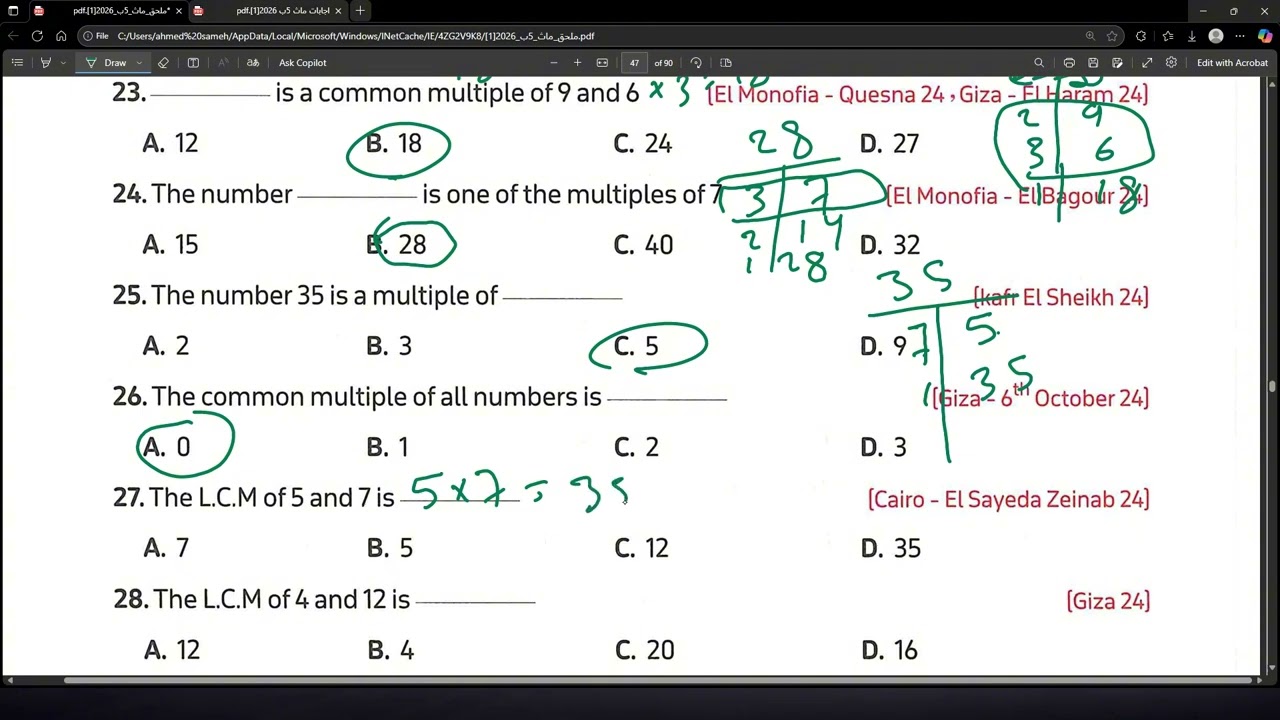 ملحق_ماث_5ب_2026[1].pdf*
اجابات ماث 5ب 2026[1].pdf
File C:/Users/ahmed%20sameh/AppData/Local/Microsoft/Windows/INetCache/IE/4ZG2V9K8/ملحق_ماث_5ب_2026[1].pdf
Draw Ask Copilot 47 of 90 Edit with Acrobat
23. ________ is a common multiple of 9 and 6 × 3 [El Monofia - Quesna 24 , Giza - El Haram 24]
2 9
3 6
1 18
A. 12 B. 18 C. 24 D. 27
28
3 7
2 14
1 28
24. The number ________ is one of the multiples of 7 [El Monofia - El Bagour 24]
A. 15 B. 28 C. 40 D. 32
25. The number 35 is a multiple of ________ [kafr El Sheikh 24]
35
7 5
1 35
A. 2 B. 3 C. 5 D. 9
26. The common multiple of all numbers is ________ [Giza - 6th October 24]
A. 0 B. 1 C. 2 D. 3
27. The L.C.M of 5 and 7 is 5 × 7 = 35 [Cairo - El Sayeda Zeinab 24]
A. 7 B. 5 C. 12 D. 35
28. The L.C.M of 4 and 12 is ________ [Giza 24]
A. 12 B. 4 C. 20 D. 16